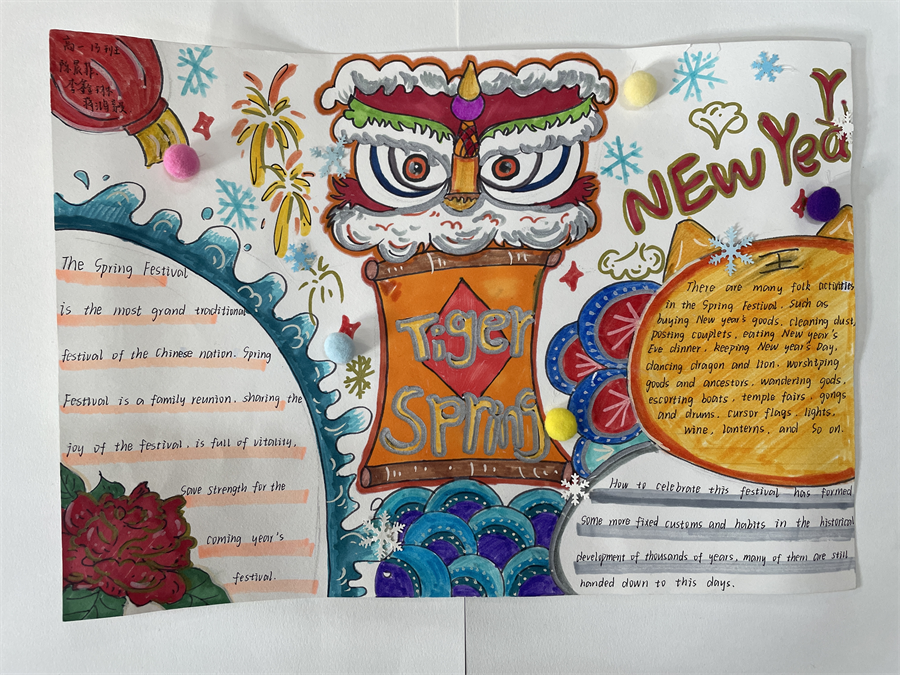 高一15班
The Spring Festival
is the most grand traditional
festival of the Chinese nation. Spring
Festival is a family reunion. sharing the
joy of the festival. is full of vitality,
Save strength for the
coming year's
festival.
Tiger
Spring
NEW Year
王
There are many folk activities
in the Spring Festival. Such as
buying New year's goods, cleaning dust,
posting couplets, eating New year's
Eve dinner, keeping New year's Day,
dancing dragon and lion. worshiping
goods and ancestors, wandering gods,
escorting boats, temple fairs, gongs
and drums, cursor flags, lights,
wine, lanterns, and so on.
How to celebrate this festival has formed
some more fixed customs and habits in the historical
development of thousands of years, many of them are still
handed down to this days.